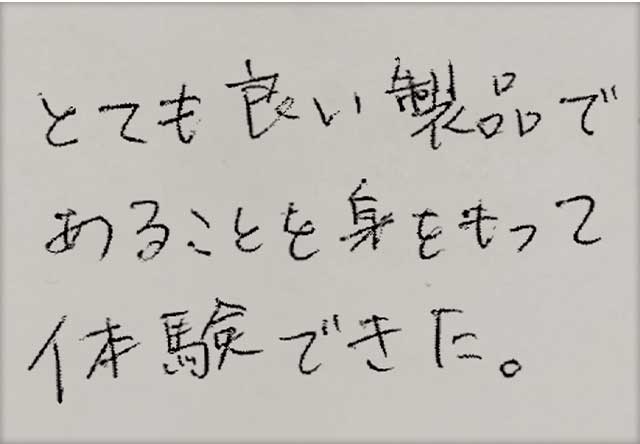 とても良い製品で
あることを身をもって
体験できた。